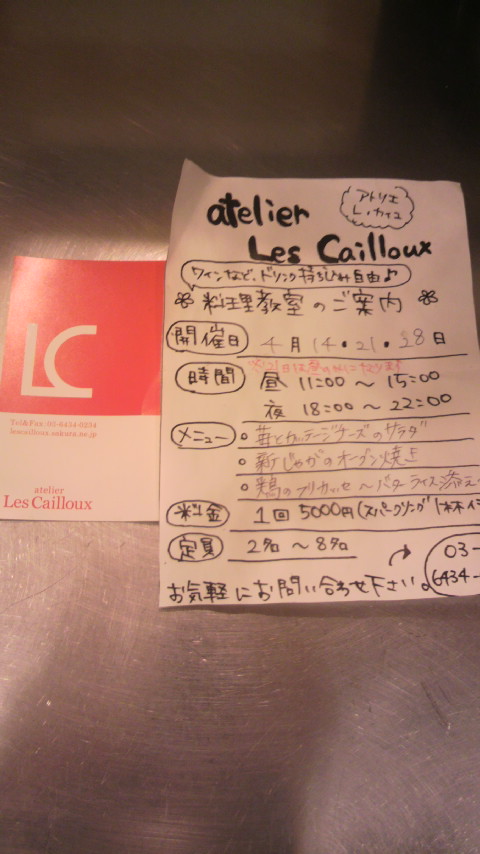 LC
Tel&Fax. 03-6434-0234
lescailloux.sakura.ne.jp
atelier
Les Cailloux
アトリエ
レ・カイユ
atelier
Les Cailloux
ワインなど、ドリンク持ち込み自由♪
料理教室のご案内
開催日 4月14・21・28日
時間 昼 11:00～15:00
夜 18:00～22:00
メニュー 。苺とカッテージチーズのサラダ
。新じゃがのオーブン焼き
。鶏のフリカッセ～バターライス添え
料金 1回 5000円(スパークリング1杯
定員 2名～8名
03-
6434-
お気軽にお問い合わせ下さい。